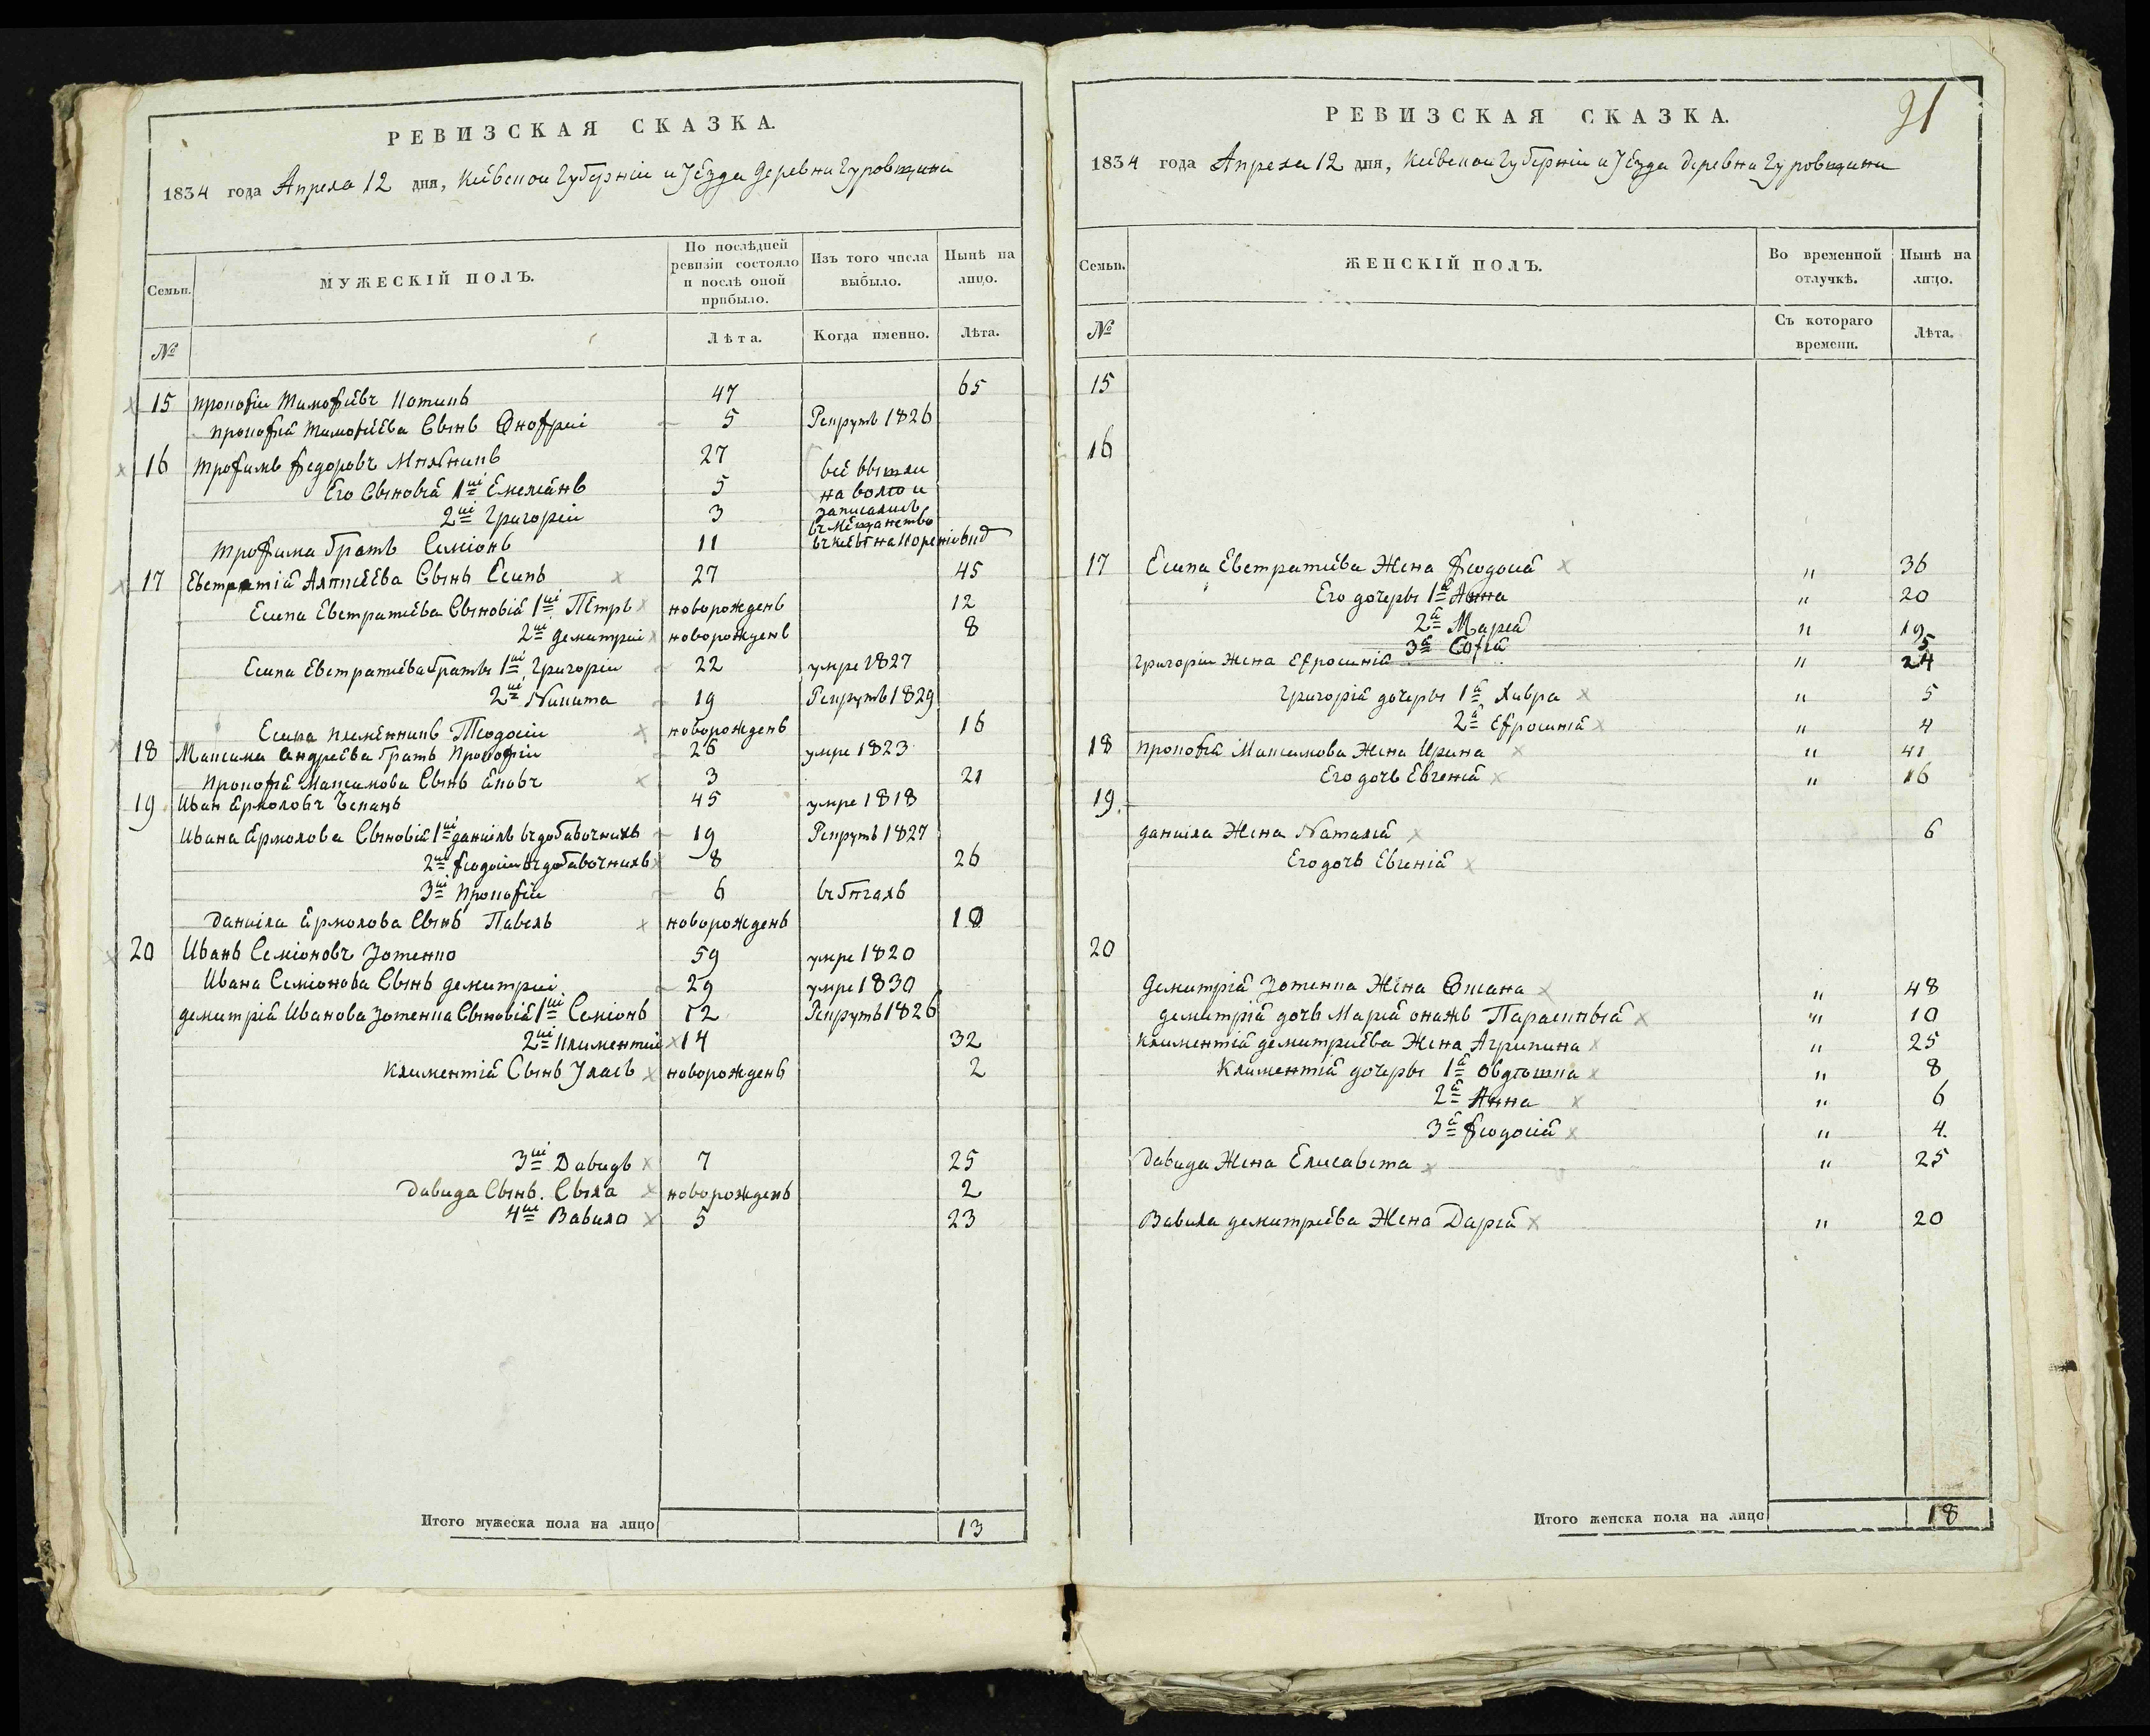 РЕВИЗСКАЯ СКАЗКА.
1834 года Апреля 12 дня, Киевской Губернiи и Уезда деревни Гуровщини
Семьи.
МУЖЕСКІЙ ПОЛЪ.
По послѣдней ревизіи состояло и послѣ оной прибыло.
Изъ того числа выбыло.
Нынѣ на лицо.
№
Лѣта.
Когда именно.
Лѣта.
15 Прокофiй Тимофѣевъ 47 65
Прокофiя Тимофѣева Сынъ Онофрiй 5 Рекрутъ 1826
16 Трофимъ Федоровъ 27 всѣ вышли
Его Сыновiя 1й Емелiянъ 5 на волю и
2й Григорiй 3 записались
въ мѣщанство
Трофима братъ Семiонъ 11 въ Кiевѣ на
17 Евстратiя Алпиѣева Сынъ Есипъ 27 45
Есипа Евстратиева Сыновiя 1й Петръ новорожденъ 12
2й Демитрiй новорожденъ 8
Есипа Евстратиева братья 1й Григорiй 22 умре 1827
2й Никита 19 Рекрутъ 1829
Есипа племѣнникъ Теодосiй новорожденъ 16
18 Максима Андреева братъ Прокофiй 26 умре 1823
Прокофiя Максимова Сынъ Яковъ 3 21
19 Иван Ермоловъ 45 умре 1818
Ивана Ермолова Сыновiя 1й Данiилъ въ добавочныхъ 19 Рекрутъ 1827
2й Феодосiй въ добавочныхъ 8 26
3й Прокофiй 6 въ бѣгахъ
Данiила Ермолова Сынъ Павелъ новорожденъ 10
20 Иванъ Семiоновъ Зотенко 59 умре 1820
Ивана Семiонова Сынъ Демитрiй 29 умре 1830
Демитрiя Иванова Зотенка Сыновiя 1й Семiонъ 12 Рекрутъ 1826
2й Климентiй 14 32
Климентiя Сынъ Уласъ новорожденъ 2
3й Давидъ 7 25
Давида Сынъ. Сыла новорожденъ 2
4й Вавило 5 23
Итого мужеска пола на лицо 13
РЕВИЗСКАЯ СКАЗКА.
1834 года Апреля 12 дня, Киевской Губернiи и Уезда деревни Гуровщини
Семьи.
ЖЕНСКІЙ ПОЛЪ.
Во временной отлучкѣ.
Нынѣ на лицо.
№
Съ котораго времени.
Лѣта.
15
16
17 Есипа Евстратиева Жена Феодосiя " 36
Его дочеры 1я Анна " 20
2я Марiя " 19
3я Софiя 5
Григорiя Жена Ефросинiя " 24
Григорiя дочеры 1я Хивра " 5
2я Ефросинiя " 4
18 Прокофiя Максимова Жена Ирина " 41
Его дочь Евгенiя " 16
19.
Данiила Жена Наталiя 6
Его дочь Евгенiя
20
Демитрiя Зотенка Жена Оксана " 48
Демитрiя дочь Марiя онажъ " 10
Климентiя Демитриева Жена Агрипина " 25
Климентiя дочеры 1я Овдотшка " 8
2я Анна " 6
3я Феодосiя " 4.
Давида Жена Елисавета " 25
Вавила Демитриева Жена Дарiя " 20
Итого женска пола на лицо 18